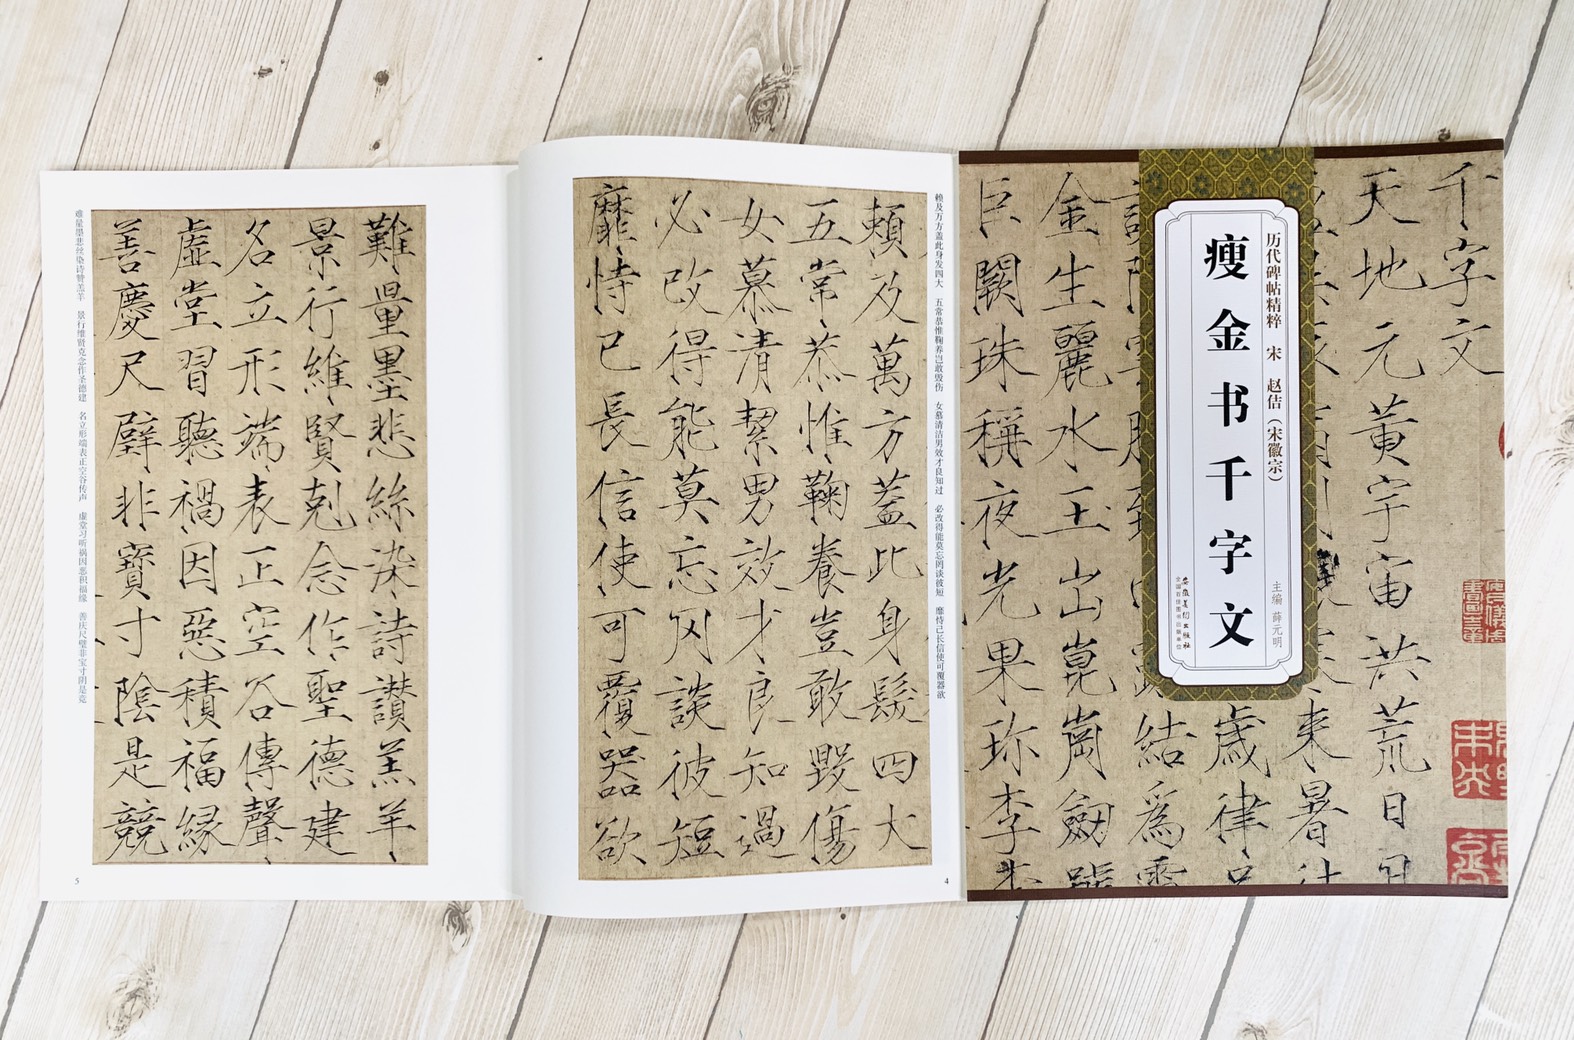 千字文
天地元黄宇宙洪荒日
来暑
歲律
結爲
金生麗水玉出崑崗劒號
巨闕珠稱夜光果珎李
历代碑帖精粹 宋 赵佶（宋徽宗）
瘦金书千字文
主编 薛元明
安徽美术出版社
全国百佳图书出版单位
赖及万方盖此身发四大 五常恭惟鞠养岂敢毁伤 女慕清洁男效才良知过 必改得能莫忘罔谈彼短 靡恃己长信使可覆器欲
賴及萬方蓋此身髮四大
五常恭惟鞠養豈敢毀傷
女慕清絜男效才良知過
必改得能莫忘罔談彼短
靡恃已長信使可覆器欲
4
難量墨悲絲染詩讃羔羊
景行維賢剋念作聖德建
名立形端表正空谷傳聲
虛堂習聽禍因惡積福縁
善慶尺璧非寶寸陰是競
难量墨悲丝染诗赞羔羊 景行维贤克念作圣德建 名立形端表正空谷传声 虚堂习听祸因恶积福缘 善庆尺璧非宝寸阴是竞
5